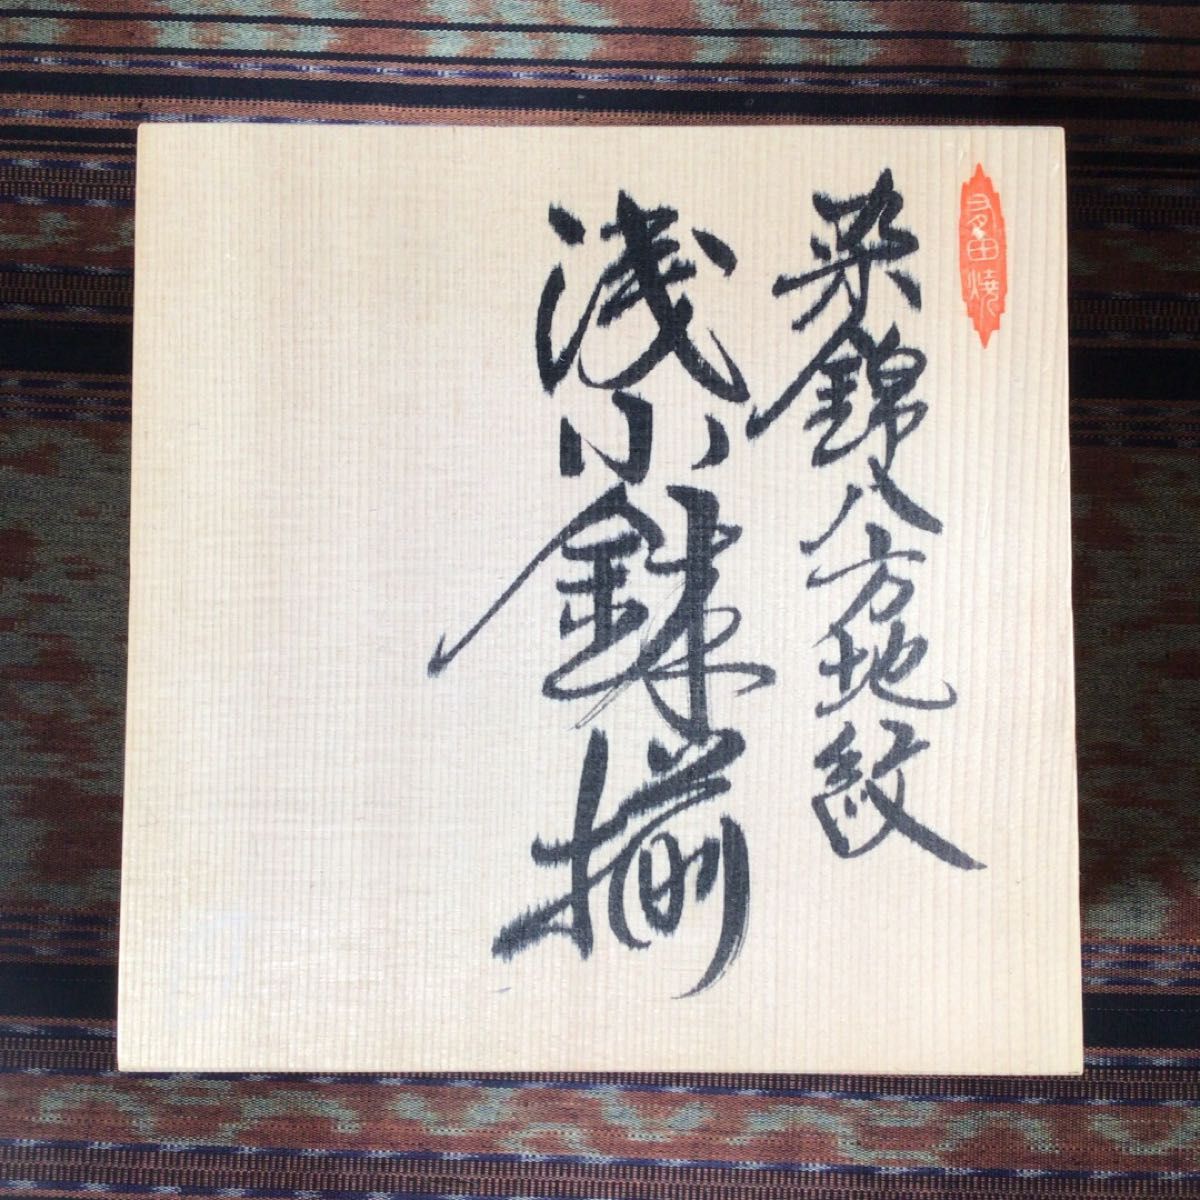 多田焼
染錦八方地紋
浅小鉢揃